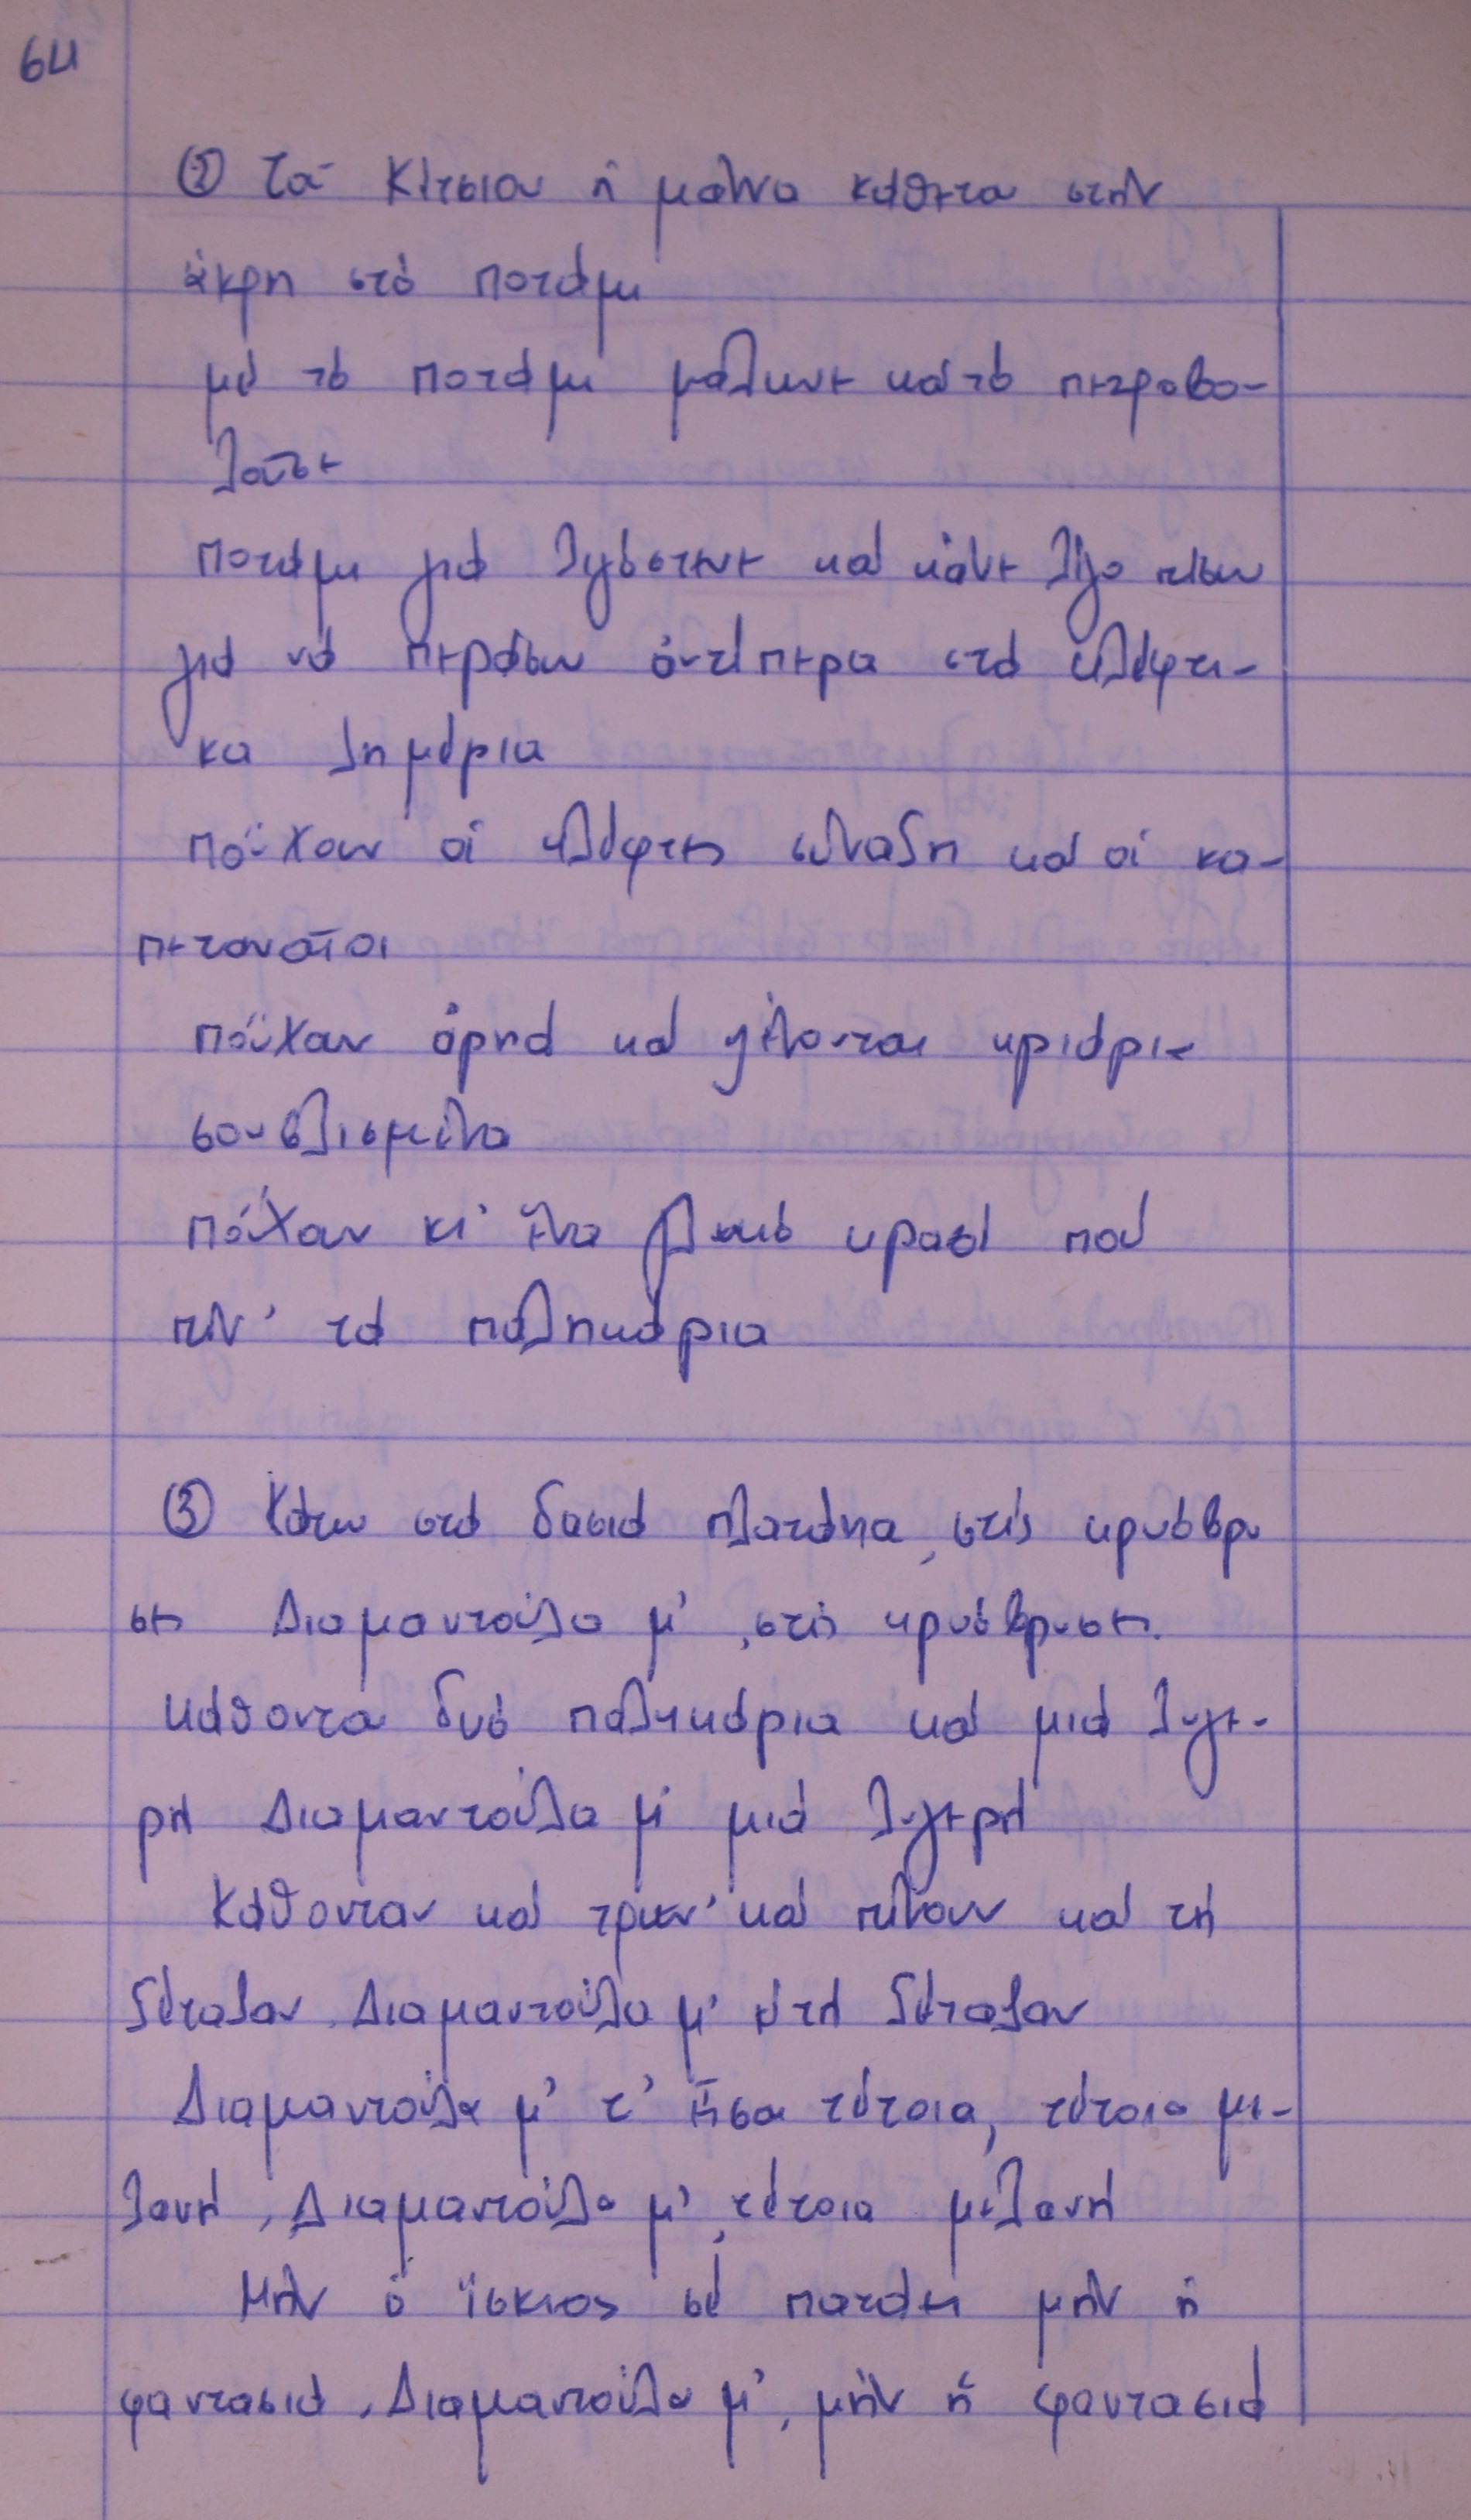 64
② Τοῦ Κίτσιου ἡ μάνα κάθεται στὴν
ἄκρη στὸ ποτάμι
μὲ τὸ ποτάμι μάλωνε καὶ τὸ πετροβο-
λοῦσε
ποτάμι γιὰ λιγόστεψε καὶ κάνε λίγο πίσω
γιὰ νὰ περάσω ἀντίπερα στὰ κλέφτι-
κα λημέρια
πὄχουν οἱ κλέφτες σύναξη καὶ οἱ κα-
πεταναῖοι
πὄχαν ἀρνιὰ καὶ ψένονται κριάρια
σουβλισμένα
πὄχαν κι' ἕνα γλυκὸ κρασὶ ποὺ
πίν' τὰ παληκάρια
③ Κάτω στὰ δασιὰ πλατάνια, στὶς κρυόβρυ
σες Διαμαντούλα μ', στὶς κρυόβρυσες.
Κάθονται δυὸ παληκάρια καὶ μιὰ λυγε-
ρὴ Διαμαντούλα μ' μιὰ λυγερὴ
Κάθονταν καὶ τρῶν' καὶ πίνουν καὶ τὴ
ξέταζαν, Διαμαντούλα μ' κὲ τὴ ξέταζαν
Διαμαντούλα μ' τ' εἶσαι τέτοια, τέτοια με-
λανή, Διαμαντούλα μ', τέτοια μελανή
Μὴν ὁ ἴσκιος σὲ πατάει μὴν ἡ
φαντασιά, Διαμαντούλα μ', μὴν ἡ φαντασιά